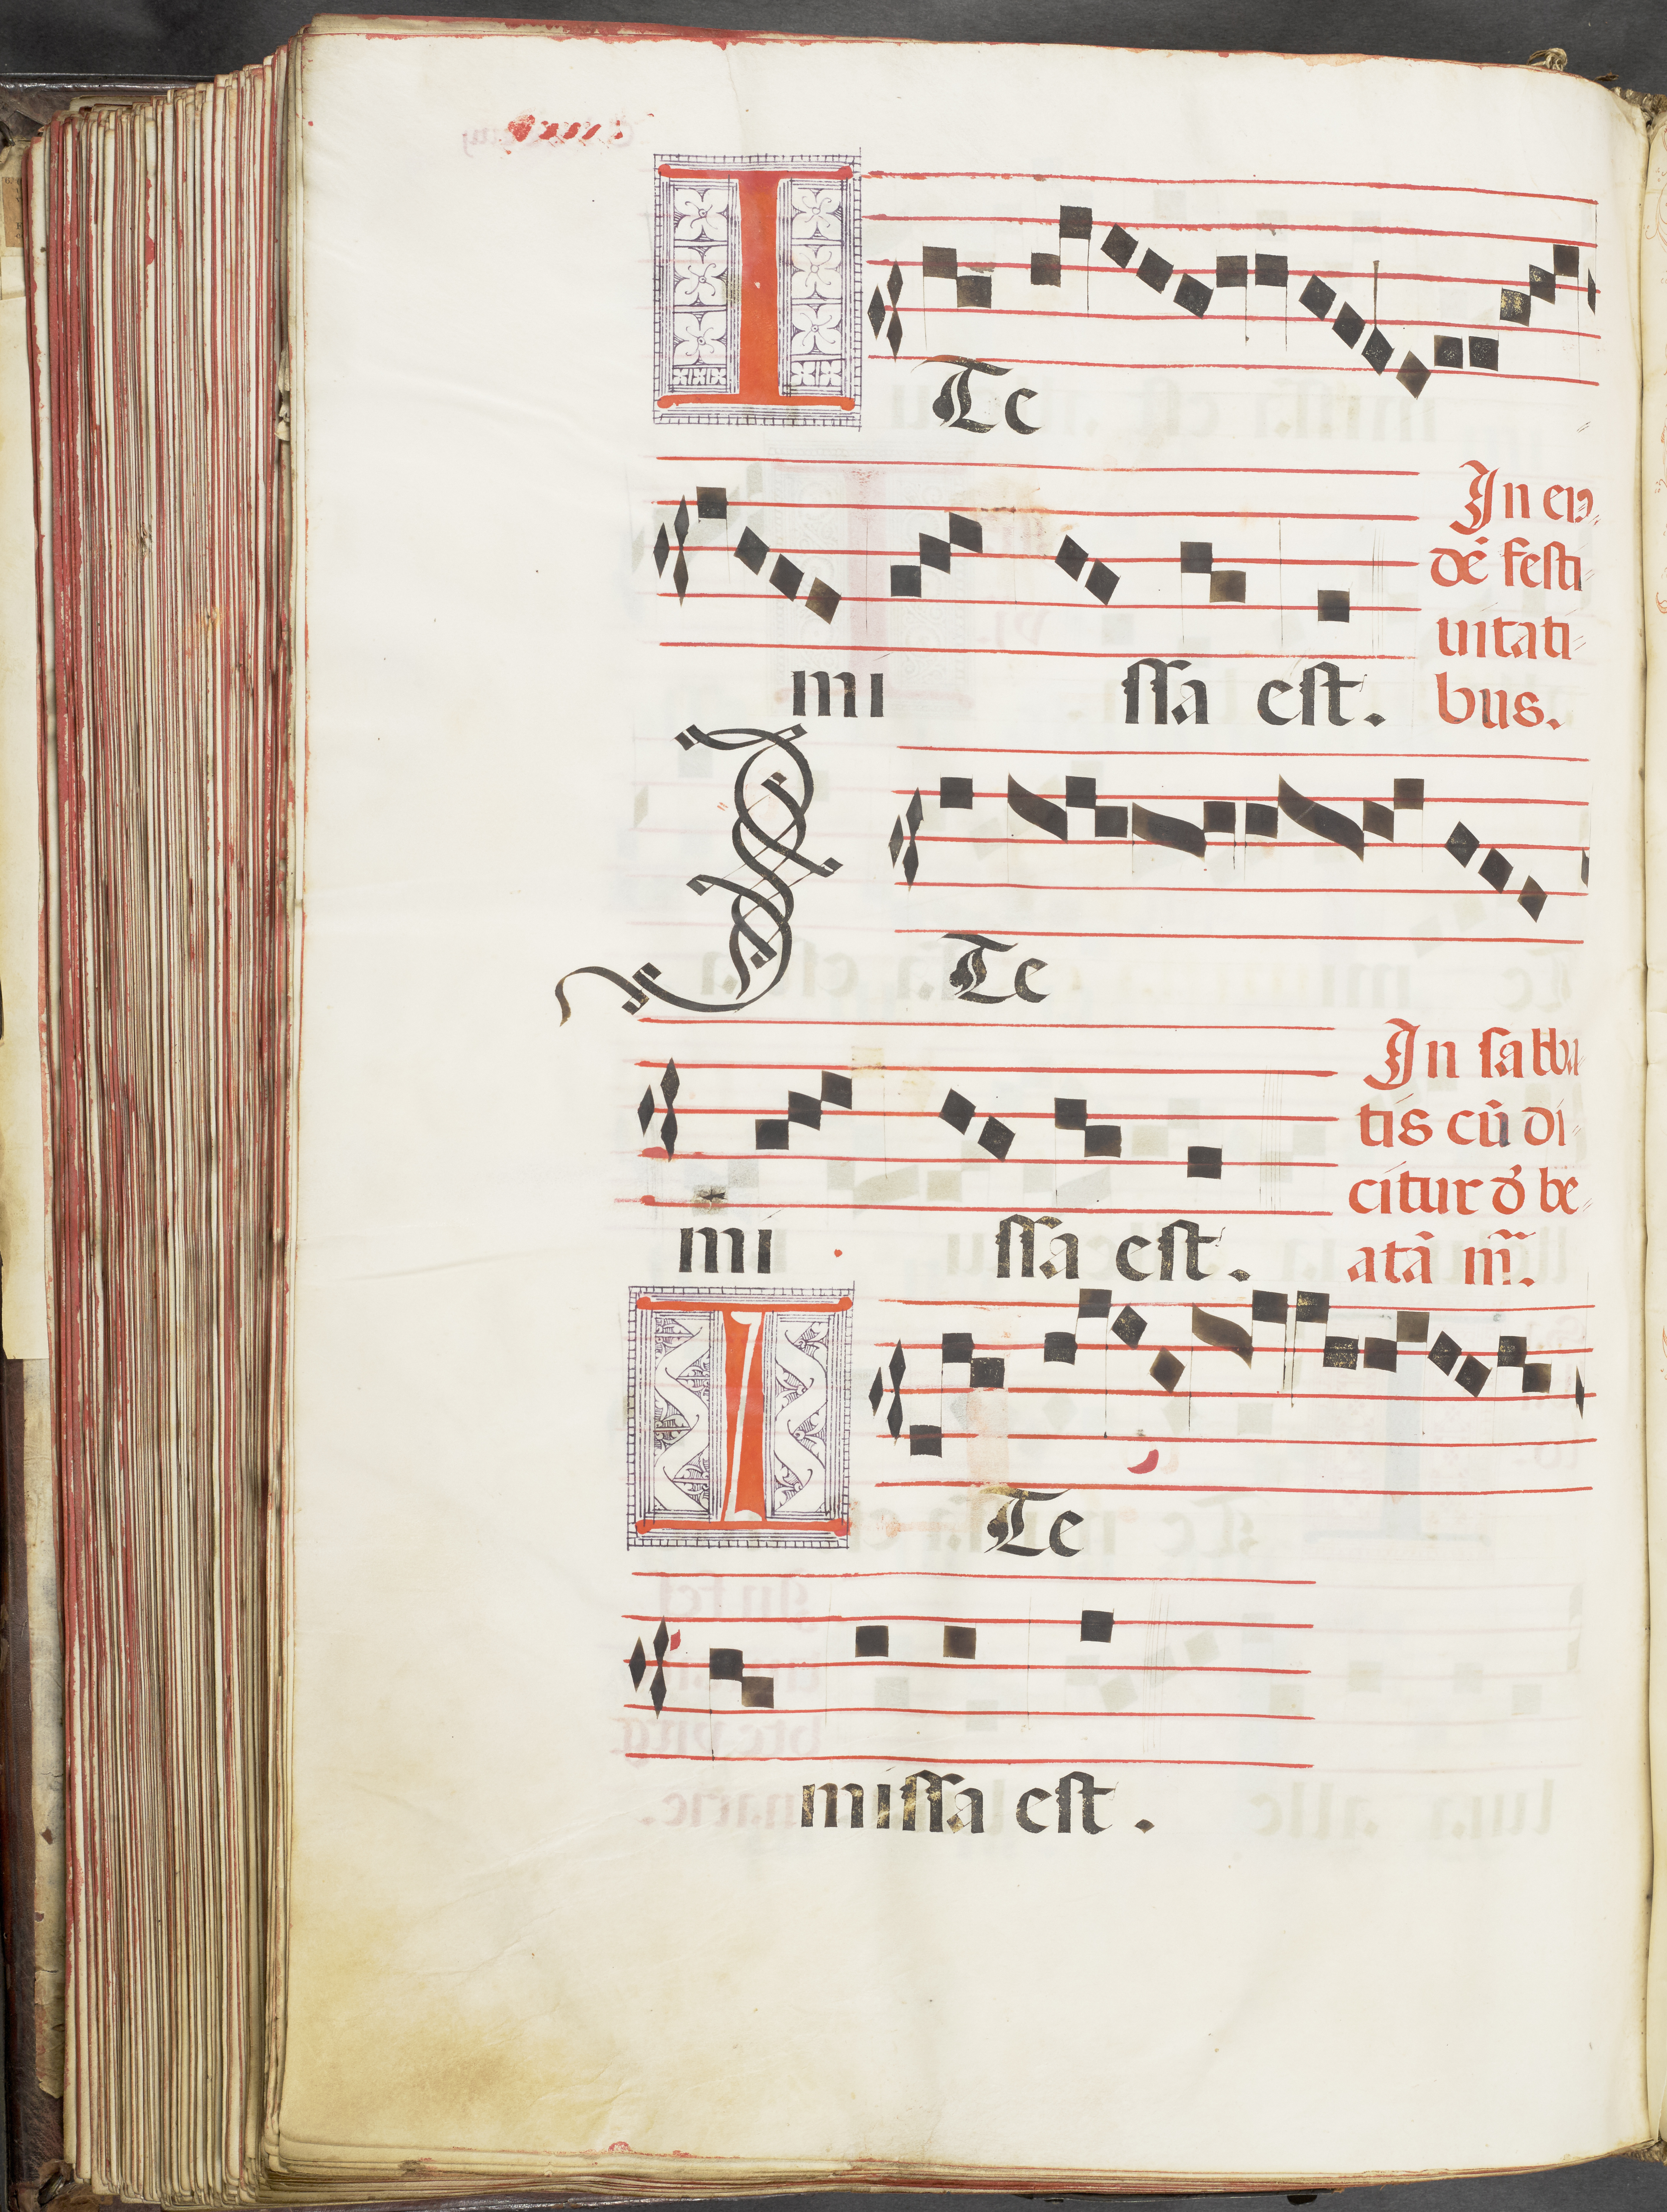 ITe
mi ssa est.
In eis-
dē festi-
uitati-
bus.
ITe
mi ssa est.
In sabba-
tis cū di-
citur d̉ be-
atā m̄.
ITe
missa est.